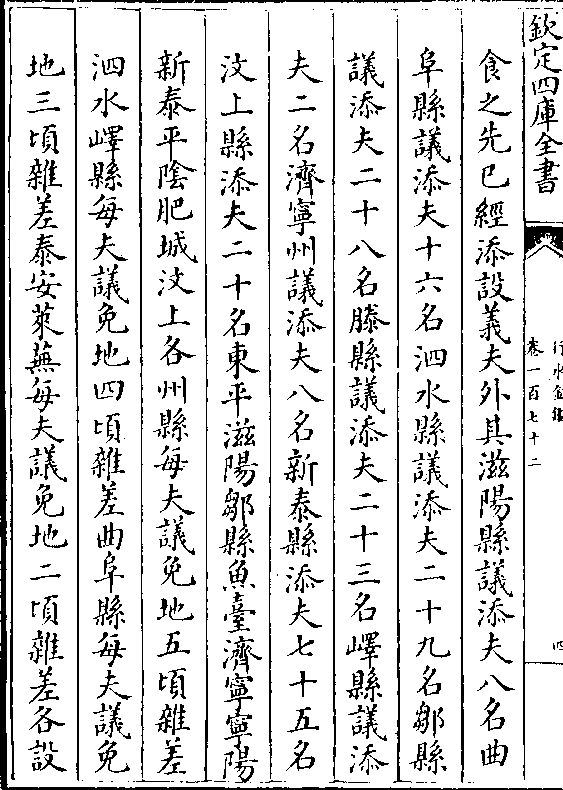 欽定四庫全書
行水金鑑
卷一百七十二
四
食之先已經添設義夫外其滋陽縣議添夫八名曲
阜縣議添夫十六名泗水縣議添夫二十九名鄒縣
議添夫二十八名滕縣議添夫二十三名嶧縣議添
夫二名濟寧州議添夫八名新泰縣添夫七十五名
汶上縣添夫二十名東平滋陽鄒縣魚臺濟寧寧陽
新泰平隂肥城汶上各州縣每夫議免地五頃雜差
泗水嶧縣每夫議免地四頃雜差曲阜縣每夫議免
地三頃雜差泰安萊蕪每夫議免地二頃雜差各設